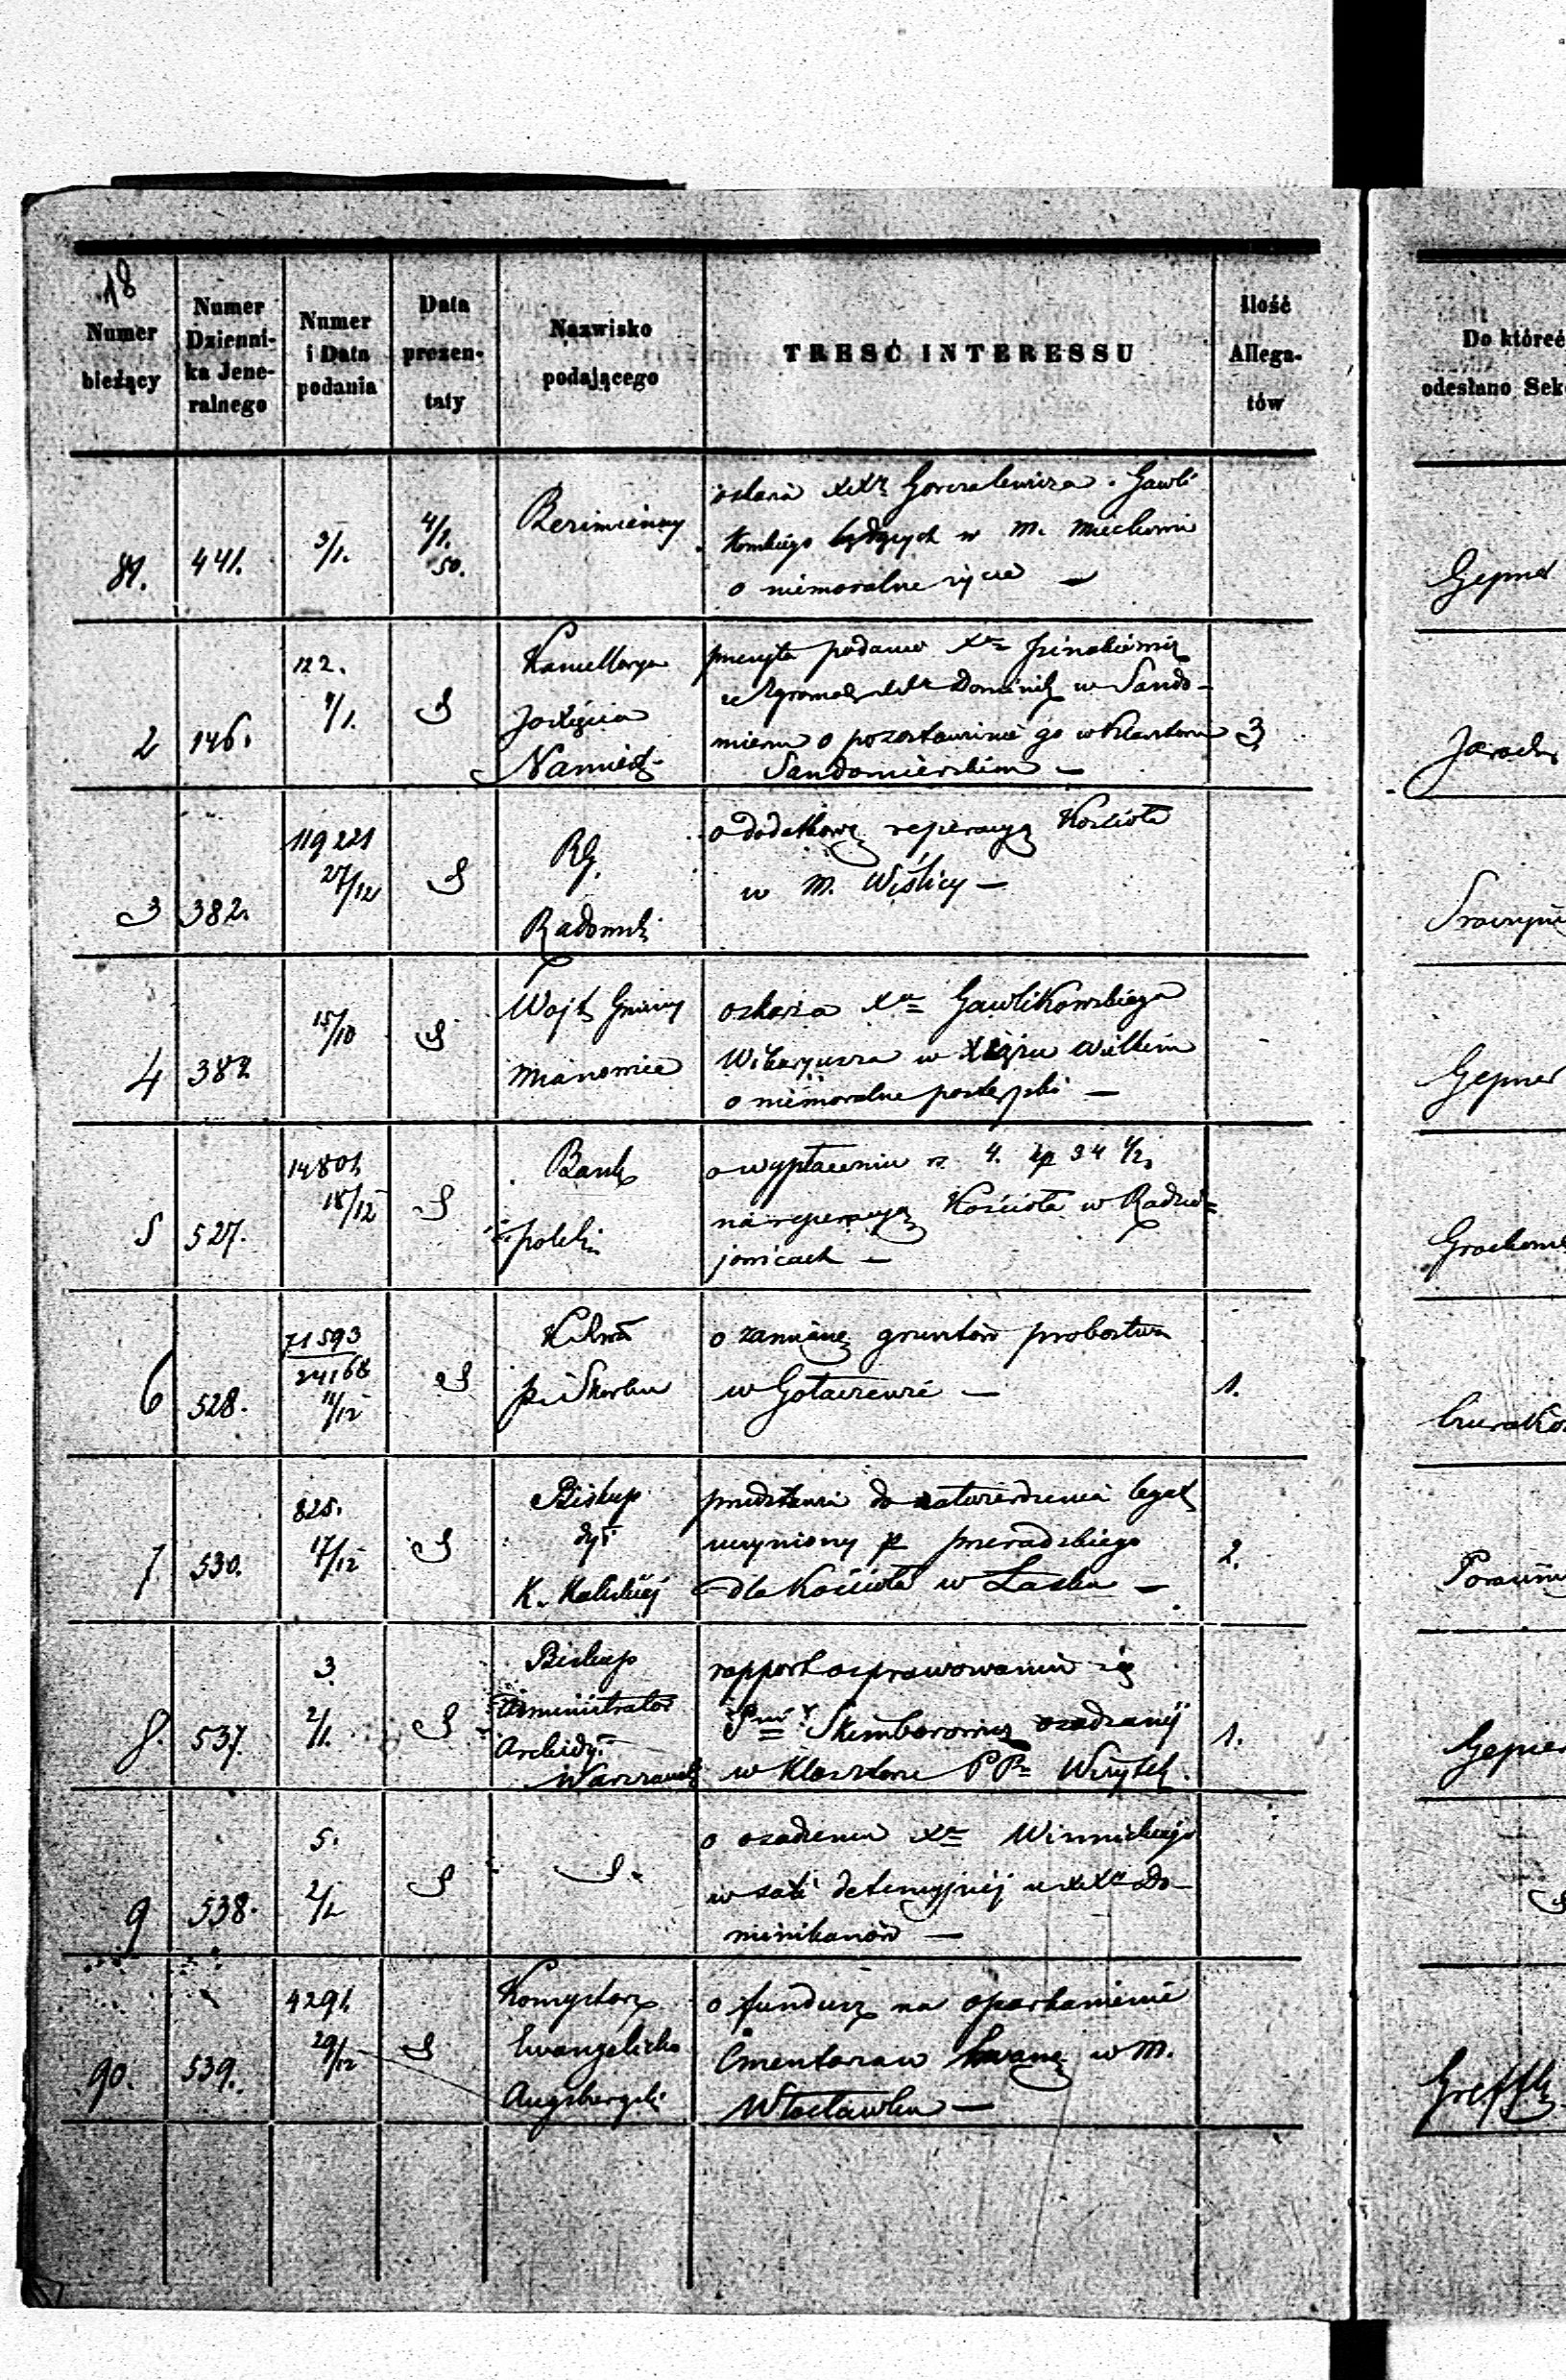 18
Numer
bieżący
Numer
Dzienni-
ka Jene-
ralnego
Numer
i Data
podania
Data
prezen-
taty
Nazwisko
podającego
TREŚĆ INTERESSU
Ilość
Allega-
tów
Do której
odesłano Sek
81.
441.
3/1.
4/1.
50.
Bezimienny
Gorczalewicza Gawli
kowskiego będących w m. Miechowie
o niemoralne życie —
Gepner
2
146.
122.
Kancellarya
Jo Xięcia
Namiest.
podanie Xa
w Sando-
mierzu o pozostawienie go w Klasztorze
Sandomierskim —
3
3
382.
119221
27/12
RG.
Radomski
o dodatkową reperacyą Kościoła
w m. Wiślicy —
4
382
15/10
Wojt Gminy
Mianowice
oskarża Xa Gawlikowskiego
Wikaryusza w Xiążu Wielkim
o niemoralne postępki —
Gepner
5
527.
14801
18/12
Bank
polski
o wypłaceniu rs. 4. kp 34 1/2
na reperacyą Kościoła w Radzie-
jowicach —
6
528.
71593
24168
11/12
p. i Skarbu
o zamianę gruntów probostwa
w Gołaczewie —
1.
7
530.
825.
17/12
Biskup
dyi
K. Kaliskiej
do zatwierdzenia legat
uczyniony pr
dla Kościoła w Łasku —
2.
8.
537.
3
2/1.
Biskup
Administrator
Archidyi
Warszawsk
rapport o sprawowaniu się
Skemborowicz osadzanej
w Klasztorze PP. Wizytek.
1.
Gepner
9
538.
5.
2/1
o osadzeniu Xa Winnickiego
w sali detencyjnej u XX Do-
minikanów —
90.
539.
4291
29/12
Konsystorz
Ewangelicko
Augsburgski
o fundusz na oparkanienie
Cmentarza w m.
Włocławku —